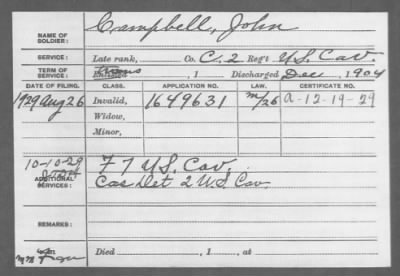 NAME OF SOLDIER: Campbell, John
SERVICE: Late rank, Co. C. 2 Reg't U.S. Cav.
TERM OF SERVICE: Enlisted , 1 Discharged Dec , 1904
DATE OF FILING. CLASS. APPLICATION NO. LAW. CERTIFICATE NO.
1929 Aug 26 Invalid, 1649631 m/26 a-12-19-29
Widow,
Minor,
10-10-29
ADDITIONAL SERVICES: F 7 U.S. Cav.
Cas Det 2 U.S. Cav
REMARKS:
Died , 1 , at